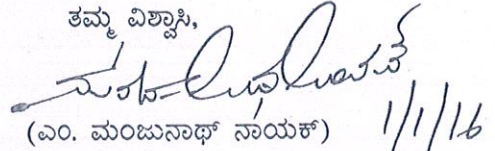 ತಮ್ಮ ವಿಶ್ವಾಸಿ,
(ಎಂ. ಮಂಜುನಾಥ್ ನಾಯಕ್)
1/1/16